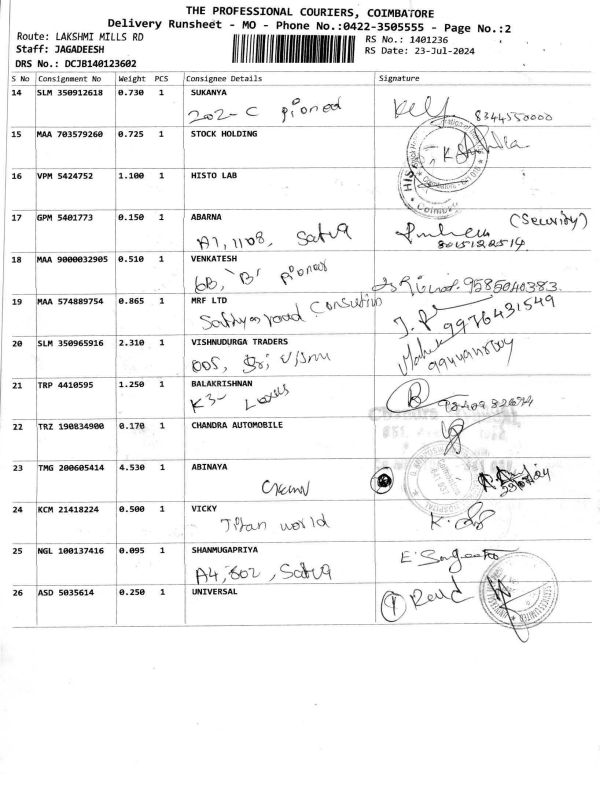 THE PROFESSIONAL COURIERS, COIMBATORE
Delivery Runsheet - MO - Phone No.:0422-3505555 - Page No.:2
Route: LAKSHMI MILLS RD RS No.: 1401236
Staff: JAGADEESH RS Date: 23-Jul-2024
DRS No.: DCJB140123602
S No Consignment No Weight PCS Consignee Details Signature
14 SLM 350912618 0.730 1 SUKANYA
202-C Pioneed 8344550000
15 MAA 703579260 0.725 1 STOCK HOLDING
16 VPM 5424752 1.100 1 HISTO LAB
17 GPM 5401773 0.150 1 ABARNA
A7, 1108, (Security)
8015122514
18 MAA 9000032905 0.510 1 VENKATESH
6B, 'B' 9585040383.
19 MAA 574889754 0.865 1 MRF LTD
road 9976431549
20 SLM 350965916 2.310 1 VISHNUDURGA TRADERS
005, Sri,
21 TRP 4410595 1.250 1 BALAKRISHNAN
K3- B
22 TRZ 190834900 0.170 1 CHANDRA AUTOMOBILE
23 TMG 200605414 4.530 1 ABINAYA
24 KCM 21418224 0.500 1 VICKY
Titan world
25 NGL 100137416 0.095 1 SHANMUGAPRIYA
A4, 802,
26 ASD 5035614 0.250 1 UNIVERSAL